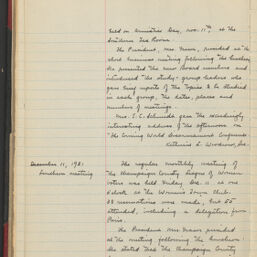 held on Armistice Day, Nov. 11th at the
Southern Tea Room.
The President, Mrs. Mann, presided at the
short business meeting following the luncheon.
She presented the new Board members and
introduced the study-group leaders who
gave brief reports of the topics to be studied
in each group, the dates, places and
numbers of meetings.
Mrs. E. C. Schmidt gave the exceedingly
interesting address of the afternoon on
"The Coming World Disarmament Conference"
Katherine L. Woodrow, Sec.
December 11, 1931
Luncheon meeting
The regular monthly meeting of
the Champaign County League of Women
Voters was held Friday Dec. 11 at one
o'clock at the Woman's Town Club.
reservations were made, but 55
attended, including a delegation from
Paris.
The President Mrs. Mann presided
at the meeting following the luncheon.
She stated that the Champaign County